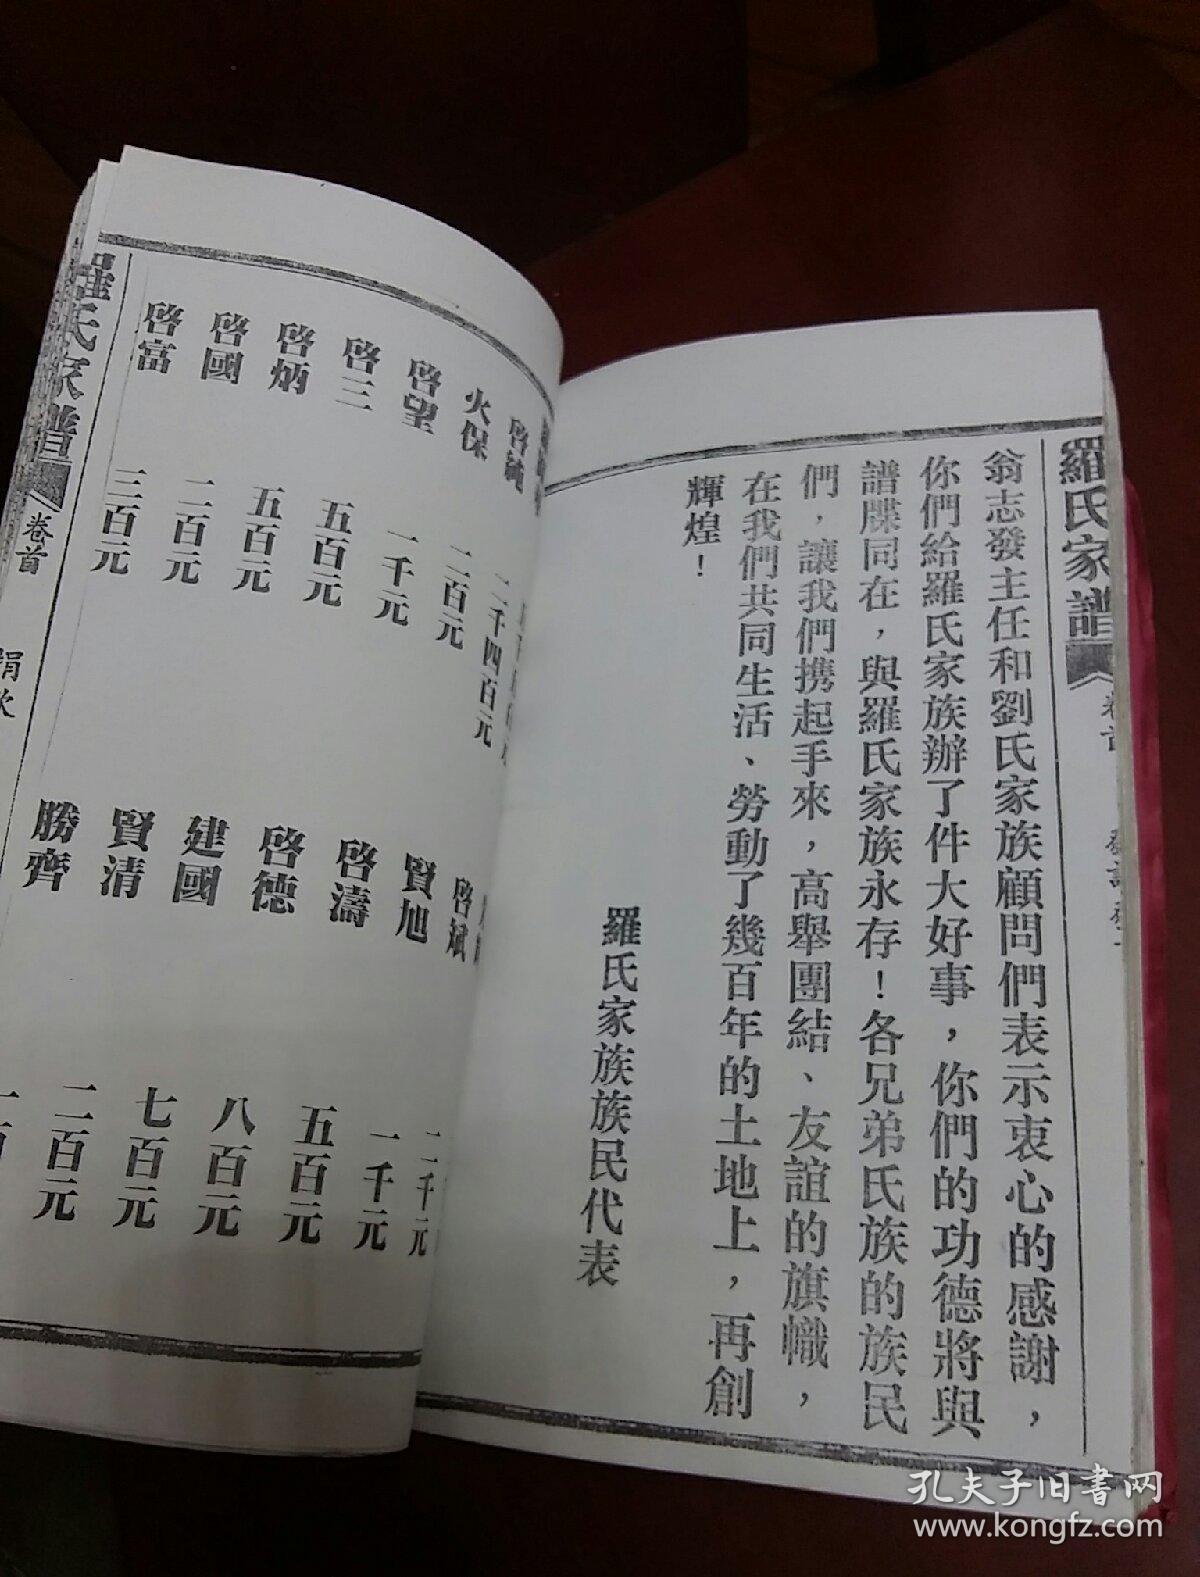 羅氏家譜
卷首
翁志發主任和劉氏家族顧問們表示衷心的感謝，
你們給羅氏家族辦了件大好事，你們的功德將與
譜牒同在，與羅氏家族永存！各兄弟氏族的族民
們，讓我們携起手來，高舉團結、友誼的旗幟，
在我們共同生活、勞動了幾百年的土地上，再創
輝煌！
羅氏家族族民代表
啓純 二千四百元
火保 二百元
啓望 一千元
啓三 五百元
啓炳 五百元
啓國 二百元
啓富 三百元
啓斌 二千元
賢旭 一千元
啓濤 五百元
啓德 八百元
建國 七百元
賢清 二百元
勝齊
羅氏家譜
卷首
捐款
孔夫子旧书网
www.kongfz.com